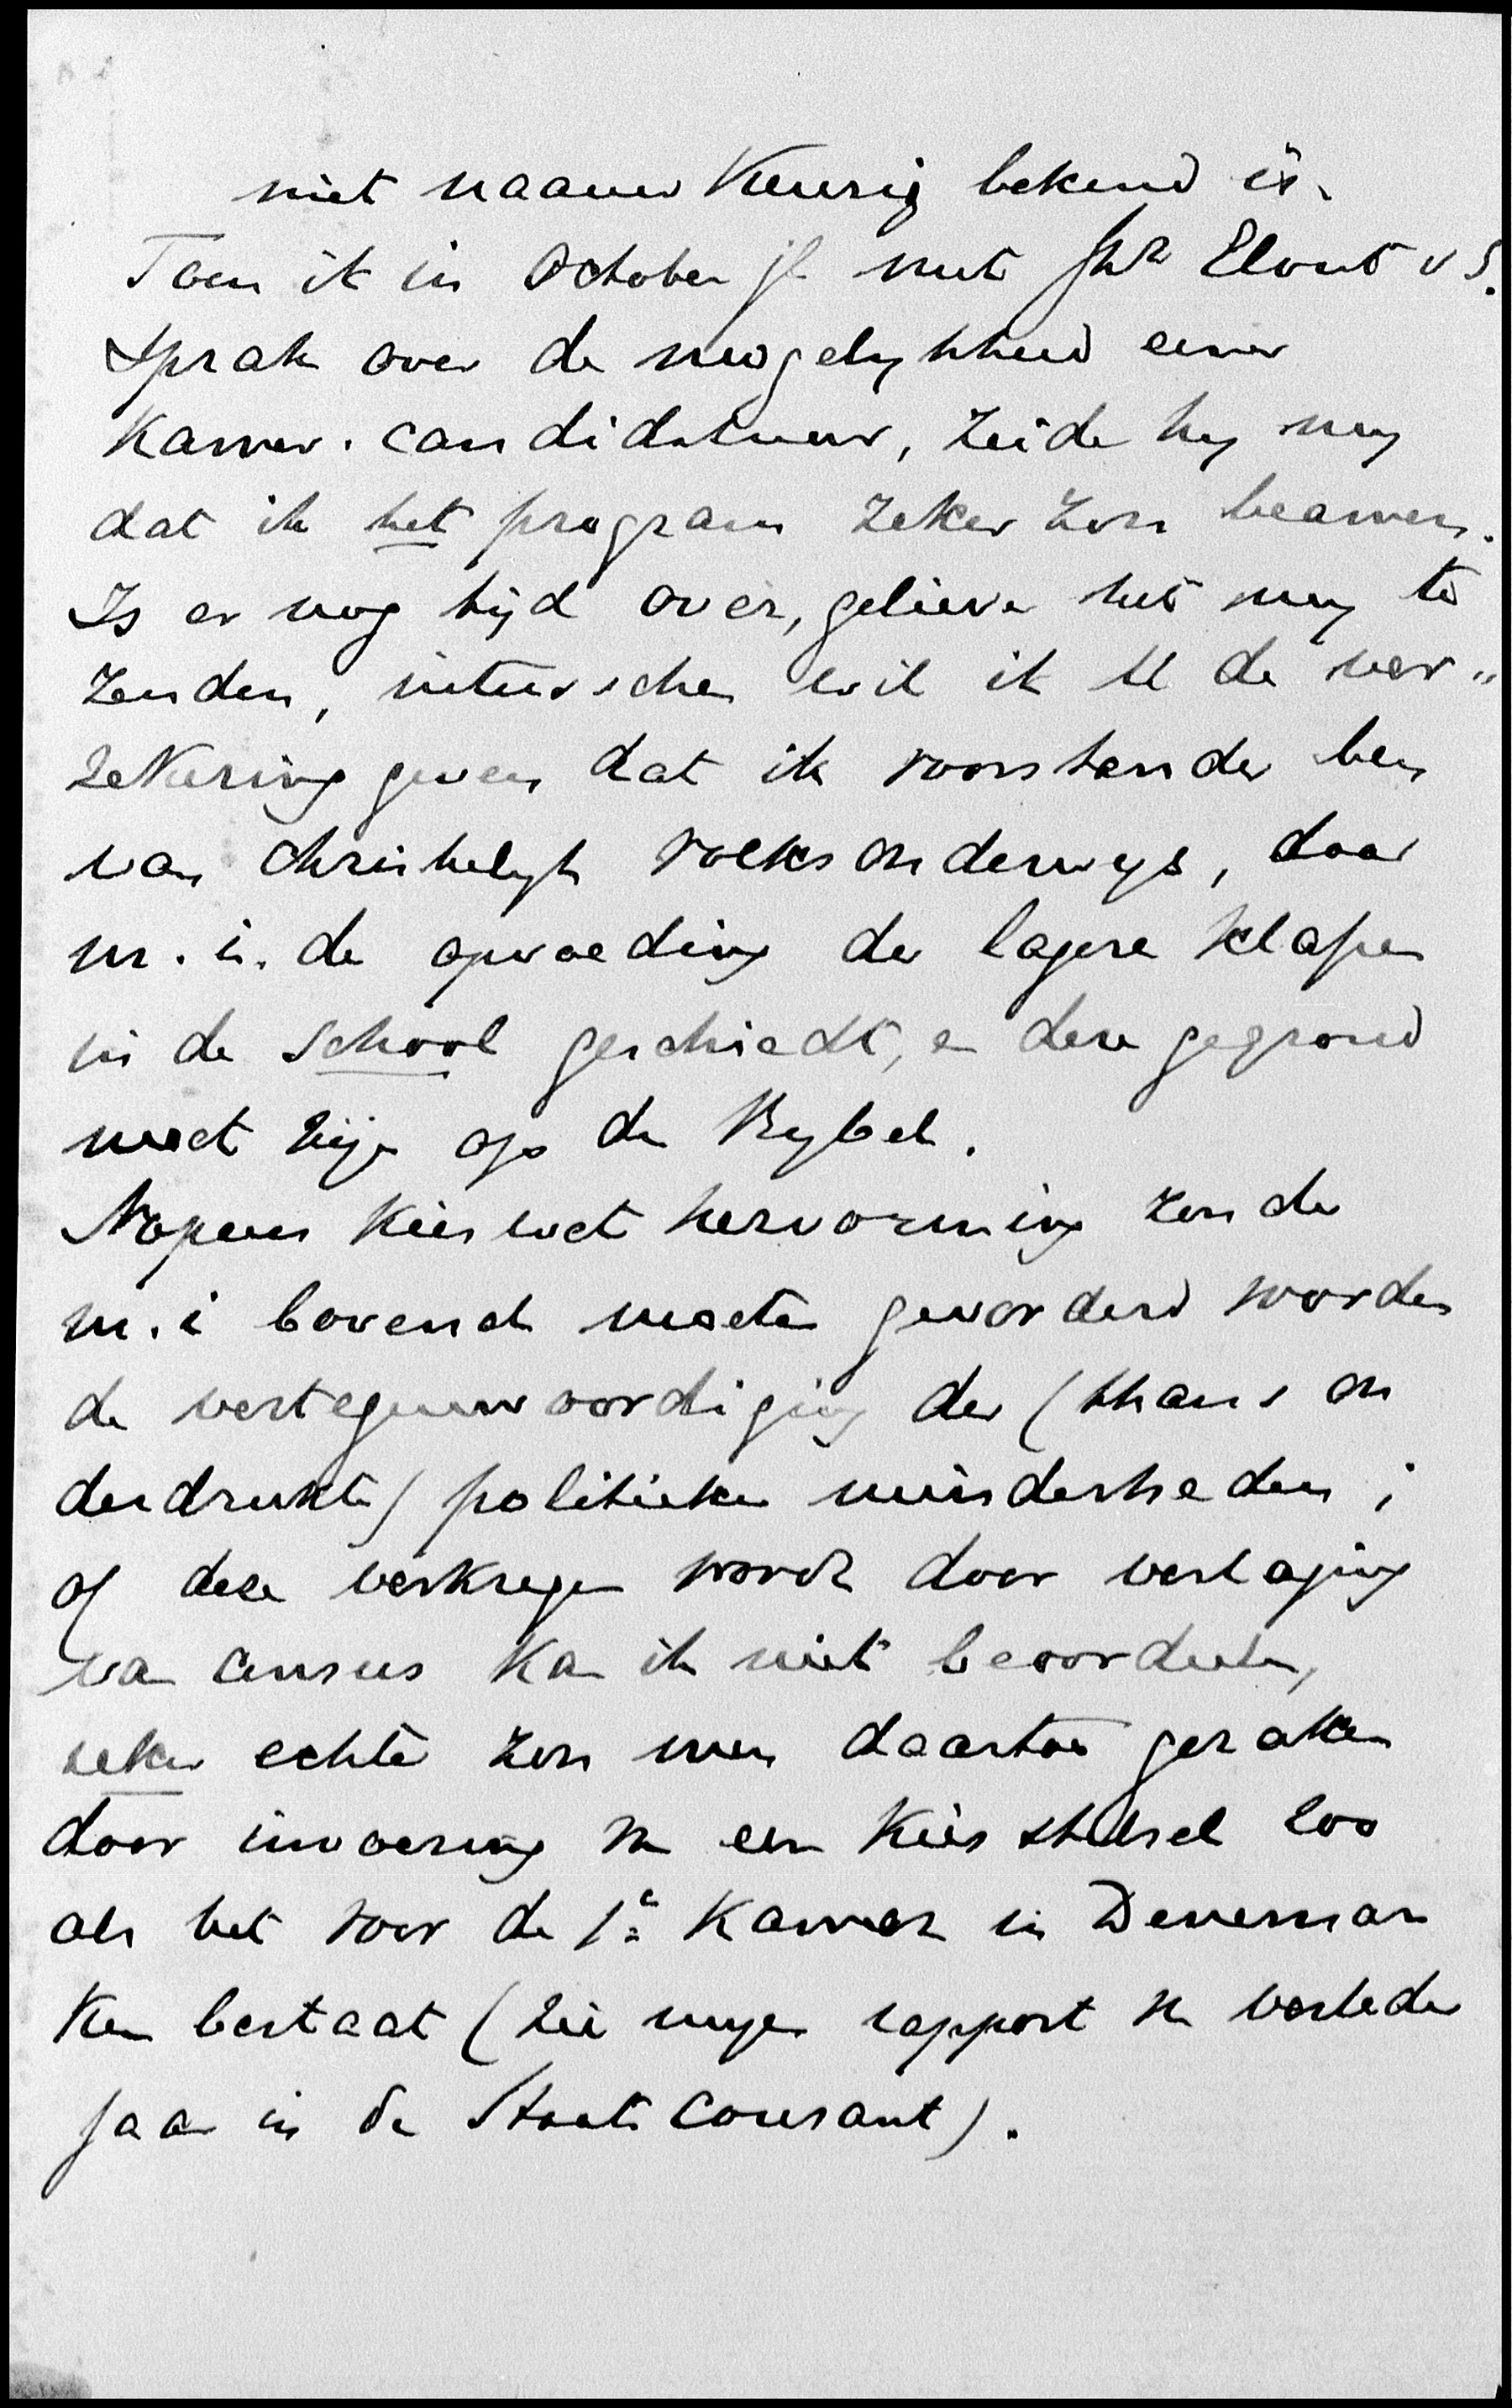 niet naauwkeurig bekend is.
Toen ik in October jl met Jhr Elout v S.
sprak over de mogelykheid eener
Kamer-candidatuur, zeide hy my
dat ik het program zeker zou beamen.
Is er nog tijd over, gelieve het my te
zenden, intusschen wil ik U de ver„
zekering geven dat ik voorstander ben
van christelyk volksonderwys, daar
m. i. de opvoeding der lagere klassen
in de school geschiedt, en deze gegrond
moet zijn op den Bybel.
Nopens Kieswet hervorming zoude
m. i bovenal moeten gevorderd worden
de vertegenwoordiging der (thans on
derdrukte) politieke minderheden;
of deze verkregen wordt door verlaging
van census kan ik niet beoordeelen,
zeker echter zou men daartoe geraken
door invoering van een Kiesstelsel zoo
als het voor de 1e Kamer in Denemar
ken bestaat (zie myn rapport van verleden
jaar in de Staats Courant).